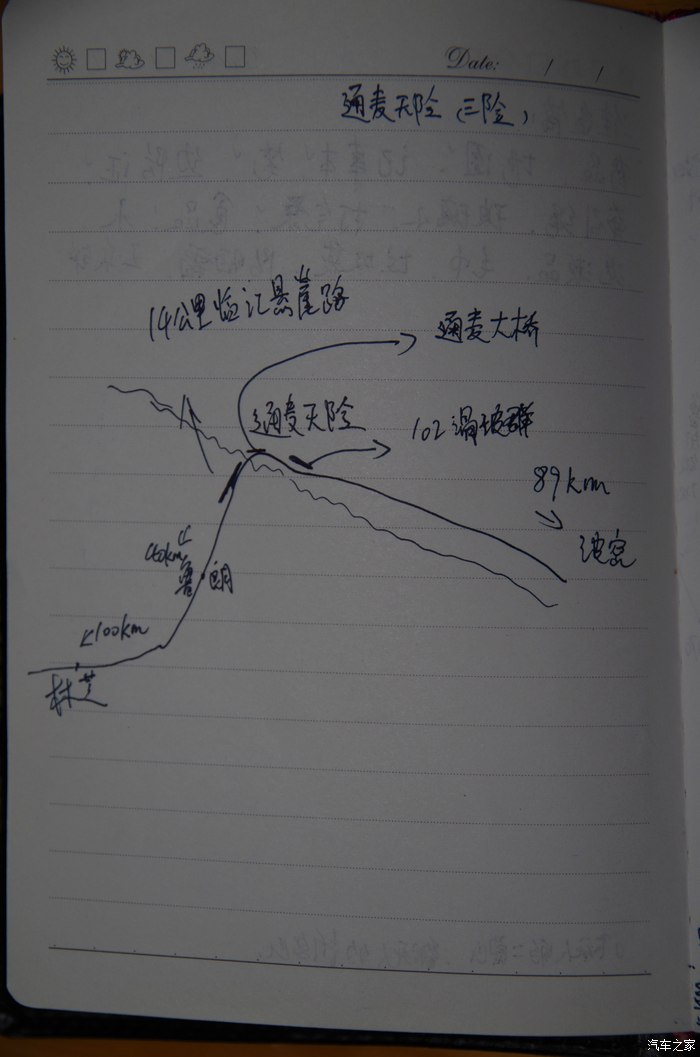 Date: / /
通麦天险(三险)
14公里临江悬崖路
通麦大桥
通麦天险
102塌坡群
89km
波密
40km
鲁朗
100km
林芝
汽车之家